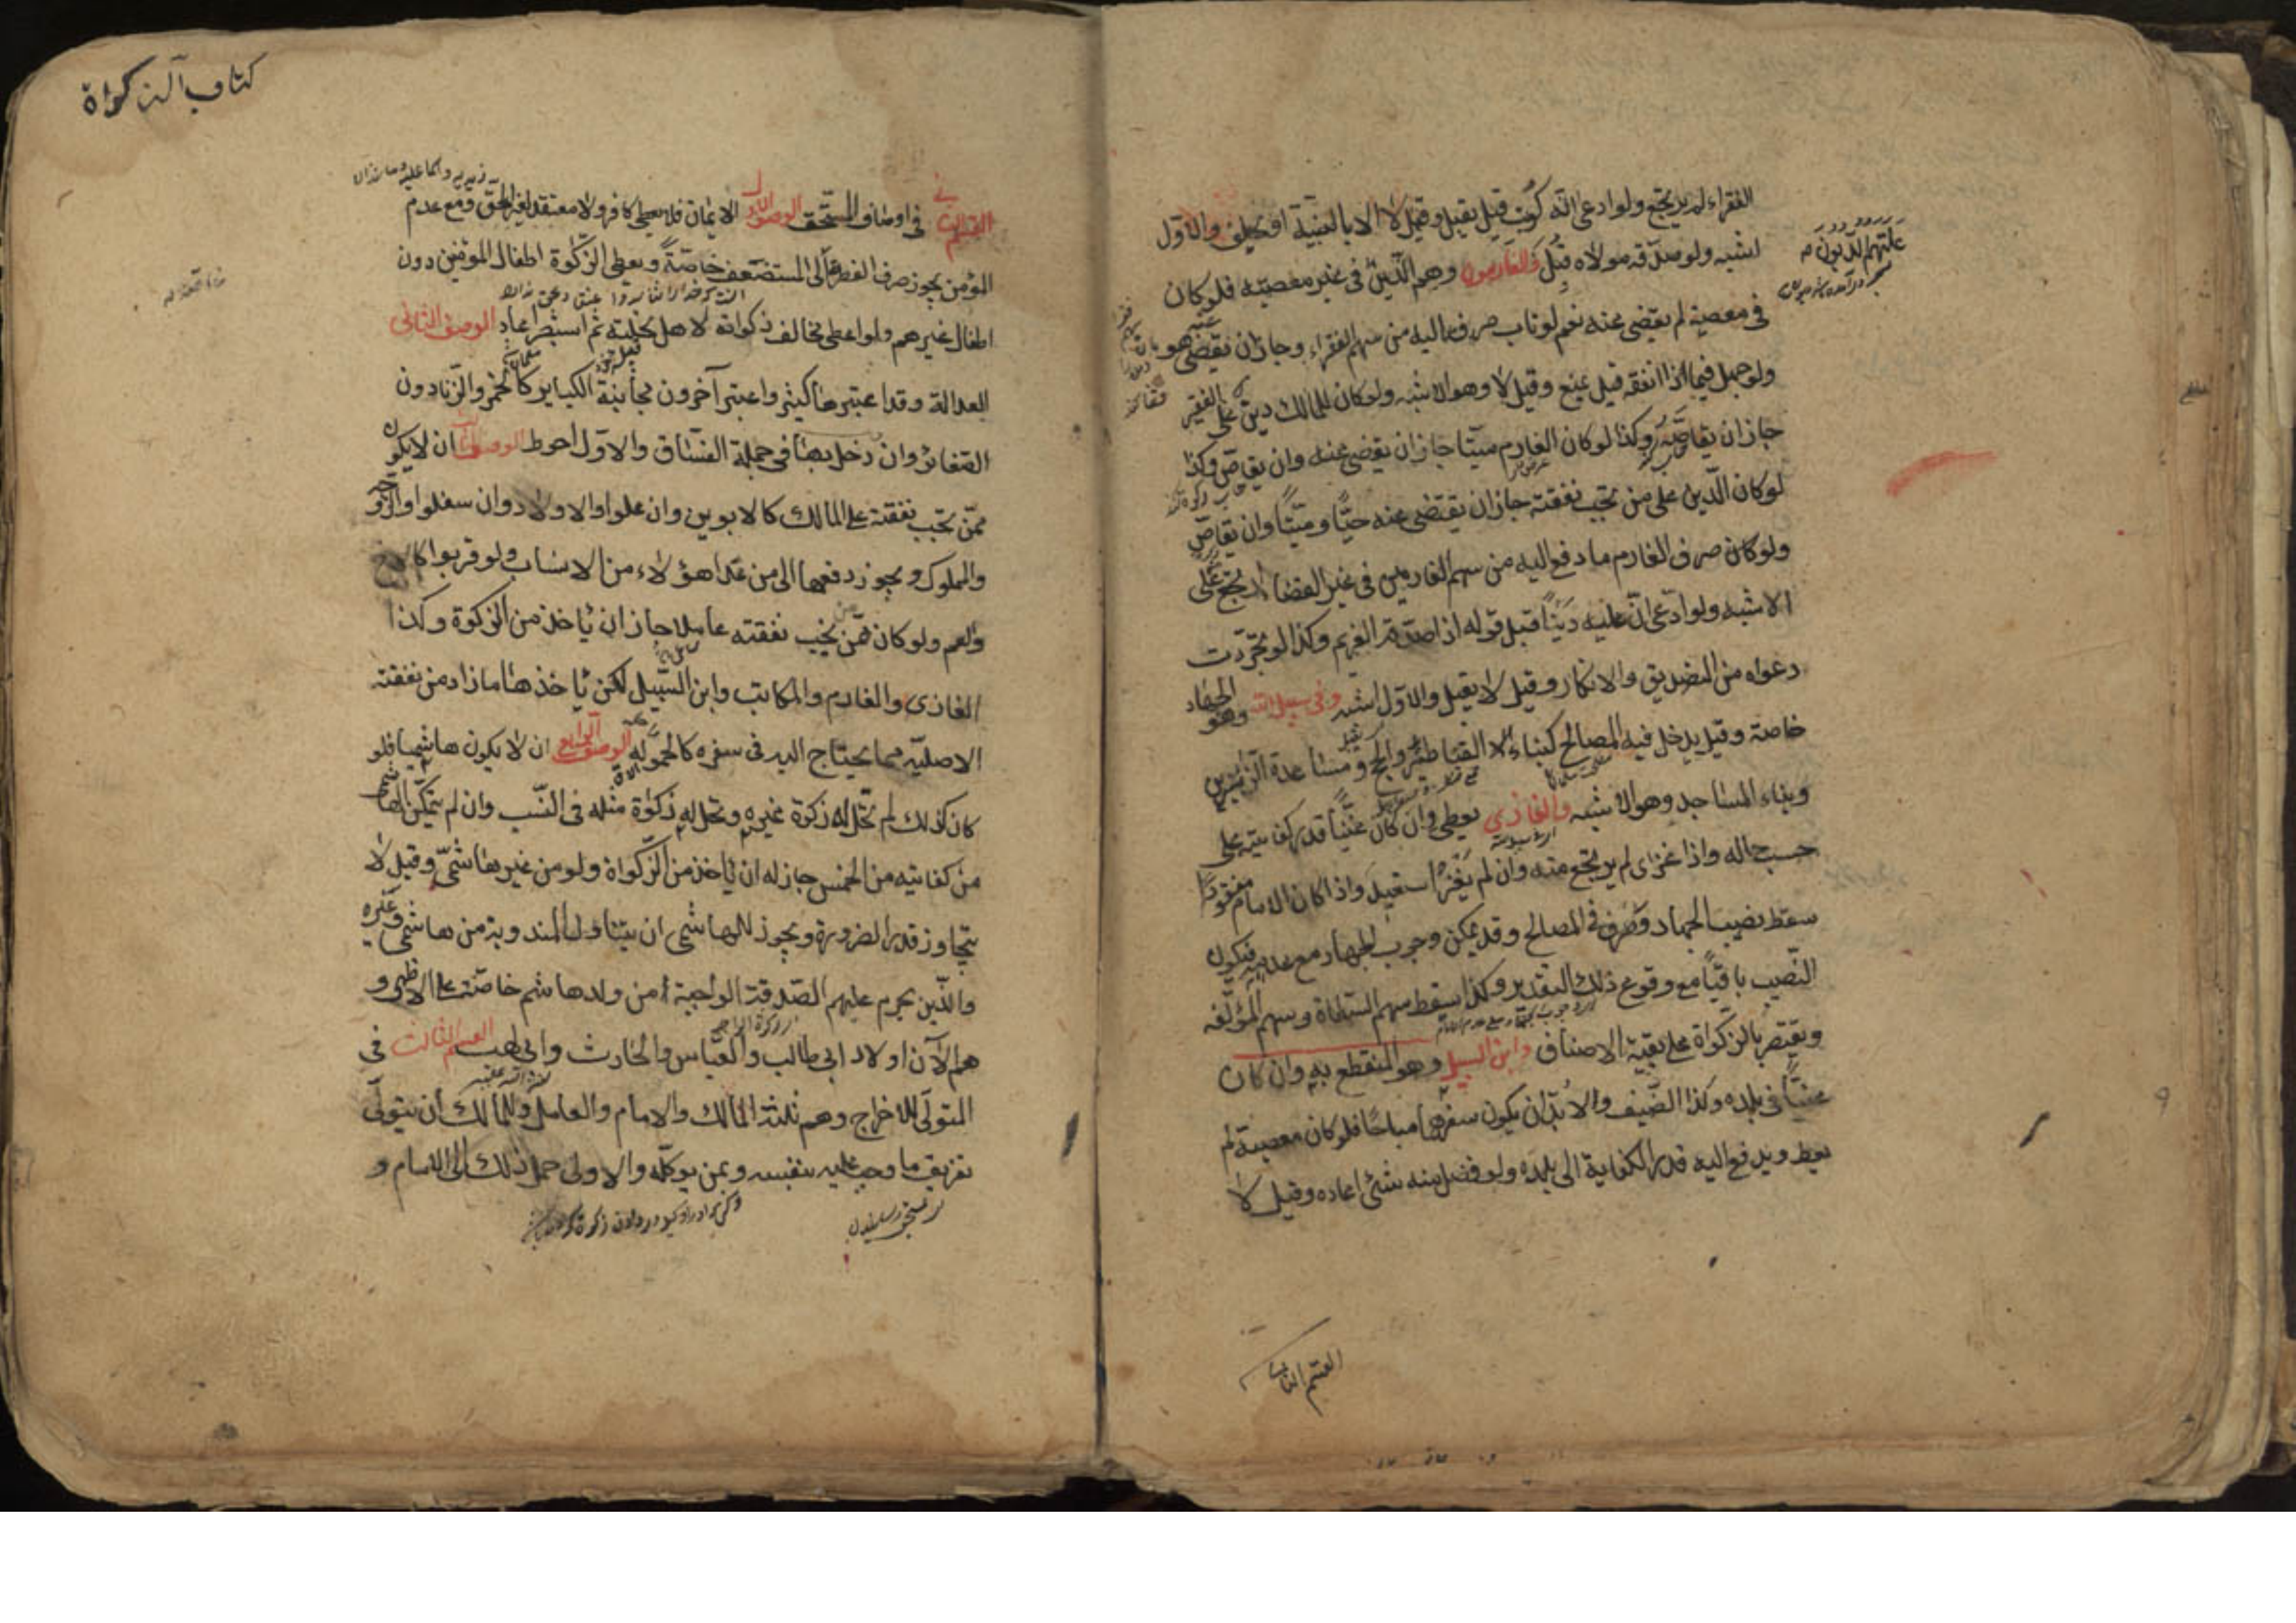 الفقراء لم يرتجع ولو ادعى انه كوتب قيل يقبل وقيل لا الا بالبينة او يحلف والاول
اشبه ولو صدقه مولاه قبل والغارمون وهم الذين في غير معصيته فلو كان
في معصية لم يقضى عنه نعم لو تاب صرف اليه من سهم الفقراء وجاز ان يقضى هو
ولو جهل فيما ذا انفقه قيل يمنع وقيل لا وهو الاشبه ولو كان للمالك دين على الفقير
جاز ان يقاصه وكذا لو كان الغارم ميتا جاز ان يقضى عنه وان يقاص وكذا
لو كان الدين على من تجب نفقته جاز ان يقتضى عنه حيا وميتا وان يقاص
ولو كان صرف الغارم ما دفع اليه من سهم الغارمين في غير القضاء ارتجع على
الاشبه ولو ادعى ان عليه دينا قبل قوله اذا صدقه الغريم وكذا لو تجردت
دعواه من التصديق والانكار وقيل لا يقبل والاول اشبه وفي سبيل الله وهو الجهاد
خاصة وقيل يدخل فيه المصالح كبناء القناطير والحج ومساعدة الزائرين
وبناء المساجد وهو الاشبه والغازى يعطى وان كان غنيا قدر كفايته على
حسب حاله واذا غزى لم يرتجع منه وان لم يغز استعيد واذا كان الامام مفقودا
سقط نصيب الجهاد وصرف في المصالح وقد يمكن وجوب الجهاد مع عدمه فيكون
النصيب باقيا مع وقوع ذلك التقدير وكذا يسقط سهم السعاة وسهم المؤلفه
ويقتصر بالزكواة على بقية الاصناف وابن السبيل وهو المنقطع به وان كان
غنيا في بلده وكذا الضيف ولابد ان يكون سفرهما مباحا فلو كان معصية لم
يعط ويدفع اليه قدر الكفاية الى بلده ولو فضل منه شئ اعاده وقيل لا
القسم الثانى
كتاب الزكواة
القسم الثانى في اوصاف المستحق الوصف الاول الايمان فلا يعطى كافر ولا معتقد لغير الحق ومع عدم
المؤمن يجوز صرف الفطرة الى المستضعف خاصة ويعطى الزكوة اطفال المؤمنين دون
اطفال غيرهم ولو اعطى مخالف زكواته لاهل نحلته ثم استبصر اعاد الوصف الثانى
العدالة وقد اعتبرها كثير واعتبر آخرون مجانبة الكباير كالخمر والزنا دون
الصغائر وان دخل بها في جملة الفساق والاول احوط الوصف الثالث ان لا يكون
ممن تجب نفقته على المالك كالابوين وان علوا والاولاد وان سفلوا والزوجة
والمملوك ويجوز دفعها الى من عدا هؤلاء من الانساب ولو قربوا كالاخ
والعم ولو كان ممن يجب نفقته عاملا جاز ان ياخذ من الزكوة وكذا
الغازى والغارم والمكاتب وابن السبيل لكن ياخذ هذا ما زاد من نفقته
الاصلية مما يحتاج اليه في سفره كالحمولة الوصف الرابع ان لا يكون هاشميا فلو
كان كذلك لم تحل له زكوة غيره وتحل له زكوة مثله في النسب وان لم يتمكن الهاشمى
من كفايته من الخمس جاز له ان ياخذ من الزكواة ولو من غير هاشمى وقيل لا
يتجاوز قدر الضرورة ويجوز للهاشمى ان يتناول المندوبة من هاشمى وغيره
والذين يحرم عليهم الصدقة الواجبة من ولد هاشم خاصة على الاظهر و
هم الآن اولاد ابي طالب والعباس والحارث وابي لهب القسم الثالث في
المتولى للاخراج وهم ثلثة المالك والامام والعامل وللمالك ان يتولى
تفريق ما وجب عليه بنفسه وبمن يوكله والاولى حمل ذلك الى الامام و